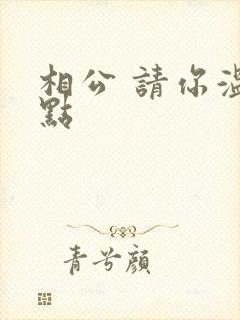 相公 請你溫
點
青兮顏